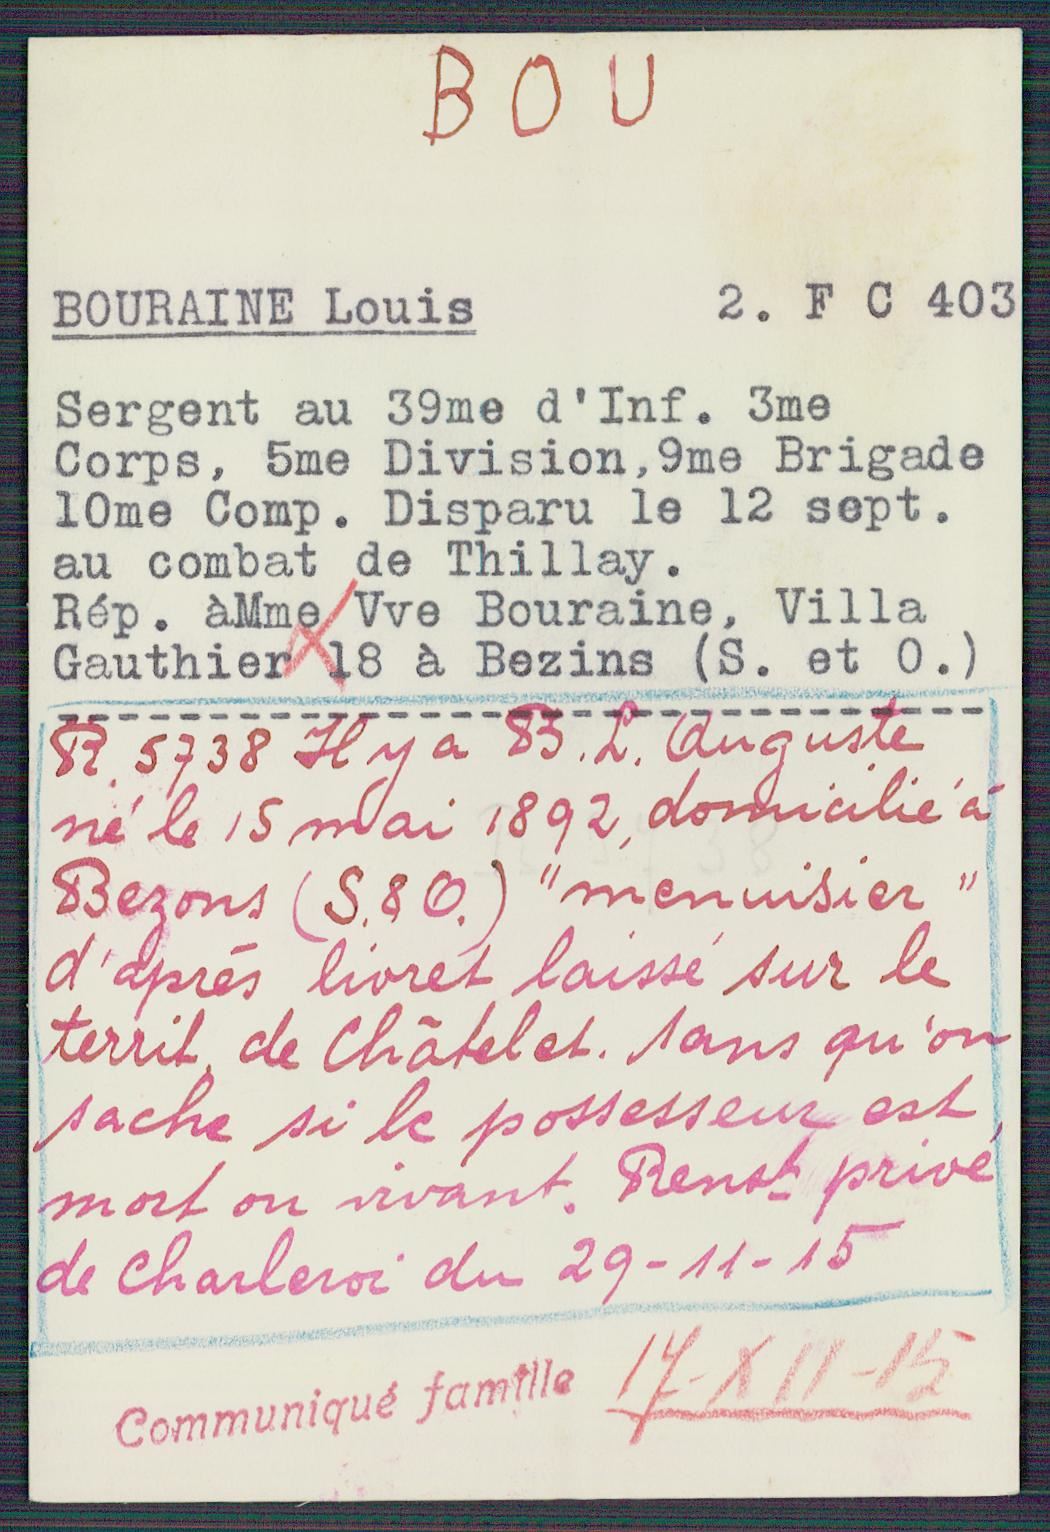 BOU
BOURAINE Louis 2. F C 403
Sergent au 39me d'Inf. 3me
Corps, 5me Division,9me Brigade
10me Comp. Disparu le 12 sept.
au combat de Thillay.
Rép. àMme Vve Bouraine, Villa
Gauthier 18 à Bezins (S. et O.)
R. 5738 Il y a B. L. Auguste
né le 15 mai 1892, domicilié à
Bezons (S. & O.) "menuisier"
d'après livret laissé sur le
territ. de Châtelet. sans qu'on
sache si le possesseur est
mort ou vivant. Renst privé
de Charleroi du 29-11-15
Communiqué famille 17-XII-15